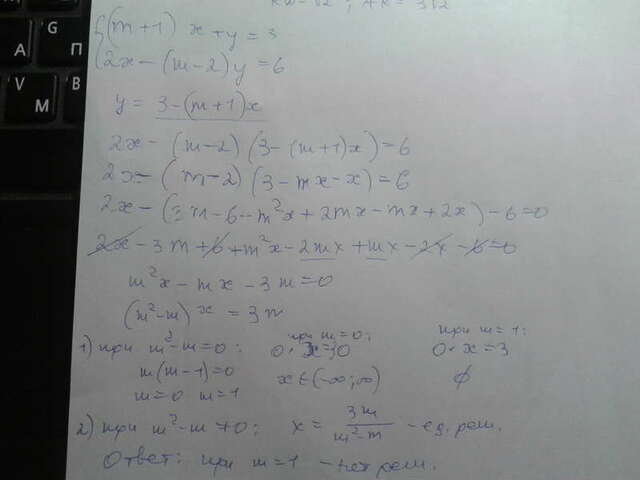 (m+1) x + y = 3
2x - (m-2) y = 6
y = 3 - (m+1)x
2x - (m-2) (3 - (m+1)x) = 6
2x - (m-2) (3 - mx - x) = 6
2x - (3m - 6 - m²x + 2mx - mx + 2x) - 6 = 0
2x - 3m + 6 + m²x - 2mx + mx - 2x - 6 = 0
m²x - mx - 3m = 0
(m² - m) x = 3m
1) при m² - m = 0: при m = 0: при m = 1:
m(m-1) = 0 0·x = 0 0·x = 3
m = 0 m = 1 x ∈ (-∞; ∞) ∅
2) при m² - m ≠ 0: x = 3m / m² - m - ед. реш.
Ответ: при m = 1 - нет реш.
A G П
V M В